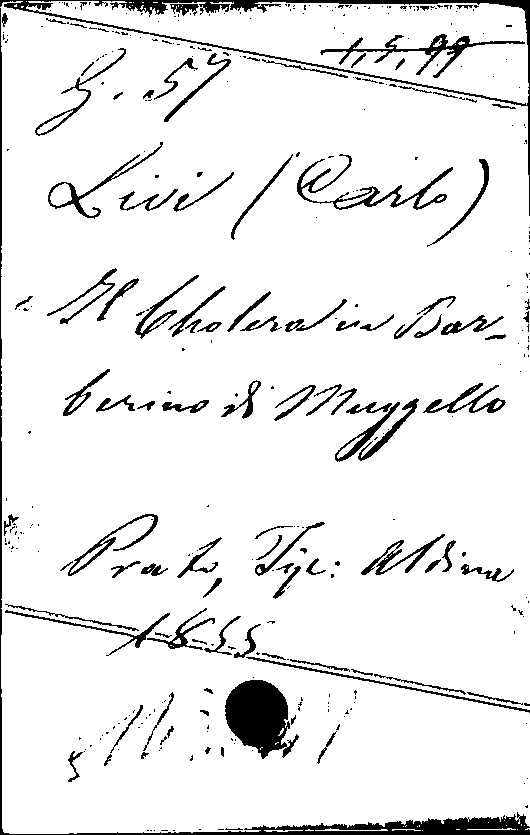 1,5,99
G. 57
Livi (Carlo)
Il Cholera in Bar-
berino di Muggello
Prato, Tip: Aldina
1855